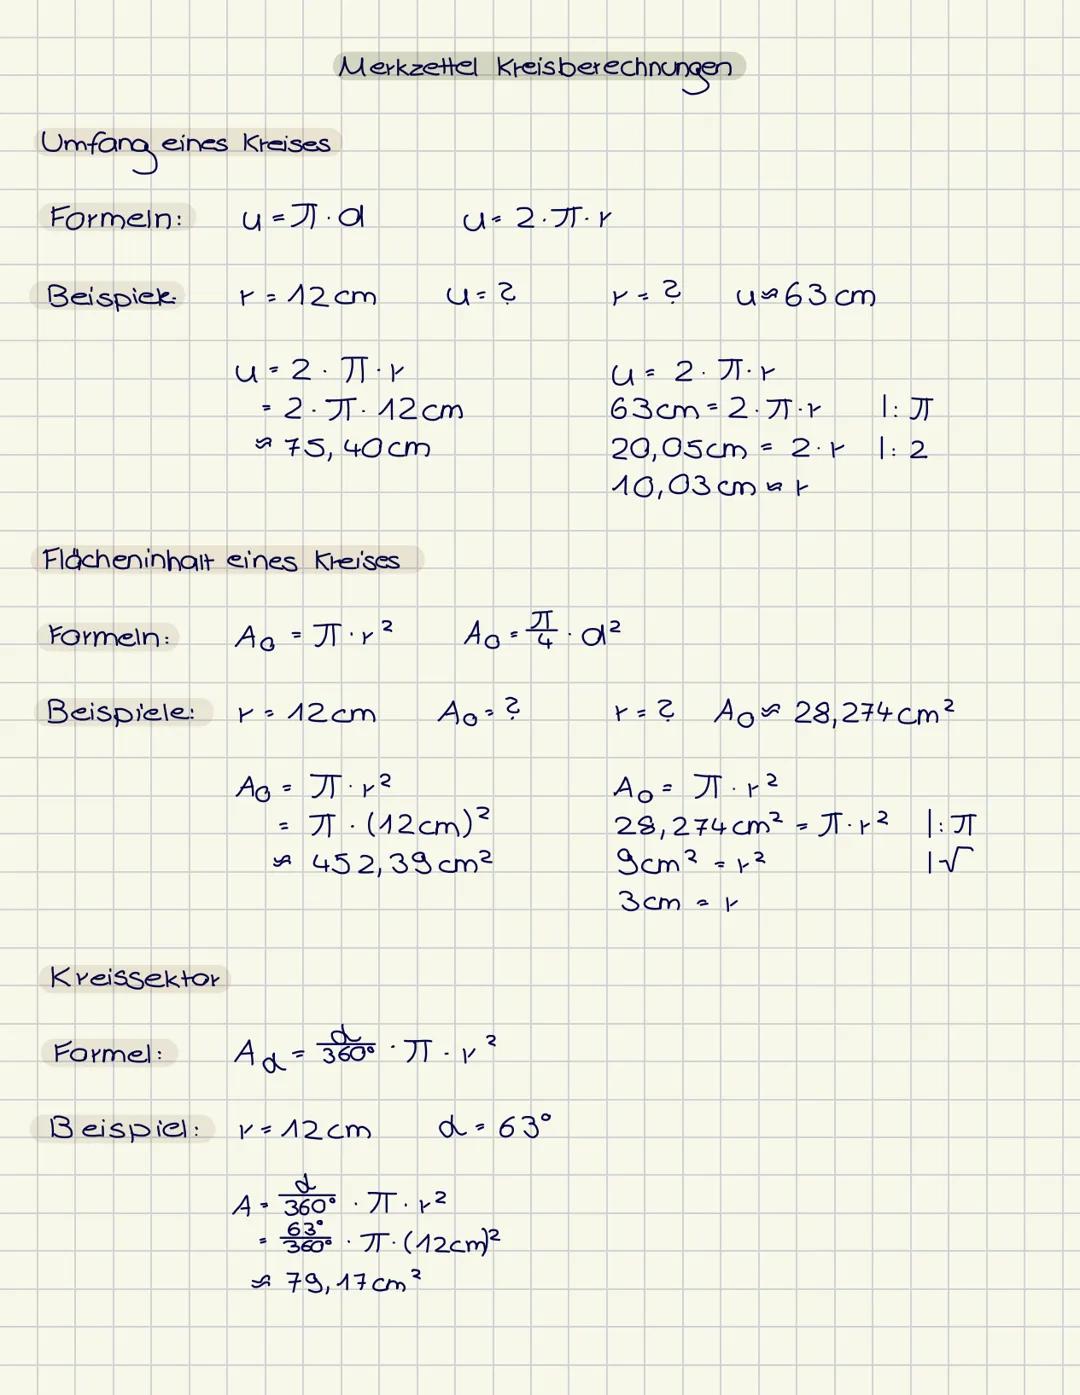 Merkzettel Kreisberechnungen
Umfang eines Kreises
Formeln: u = π · d u = 2 · π · r
Beispiele: r = 12 cm u = ? r = ? u ≈ 63 cm
u = 2 · π · r u = 2 · π · r
= 2 · π · 12 cm 63 cm = 2 · π · r |: π
≈ 75,40 cm 20,05 cm = 2 · r |: 2
10,03 cm ≈ r
Flächeninhalt eines Kreises
Formeln: A○ = π · r² A○ = π/4 · d²
Beispiele: r = 12 cm A○ = ? r = ? A○ ≈ 28,274 cm²
A○ = π · r² A○ = π · r²
= π · (12 cm)² 28,274 cm² = π · r² |: π
≈ 452,39 cm² 9 cm² = r² |√
3 cm = r
Kreissektor
Formel: Aα = α/360° · π · r²
Beispiel: r = 12 cm α = 63°
A = α/360° · π · r²
= 63°/360° · π · (12 cm)²
≈ 79,17 cm²